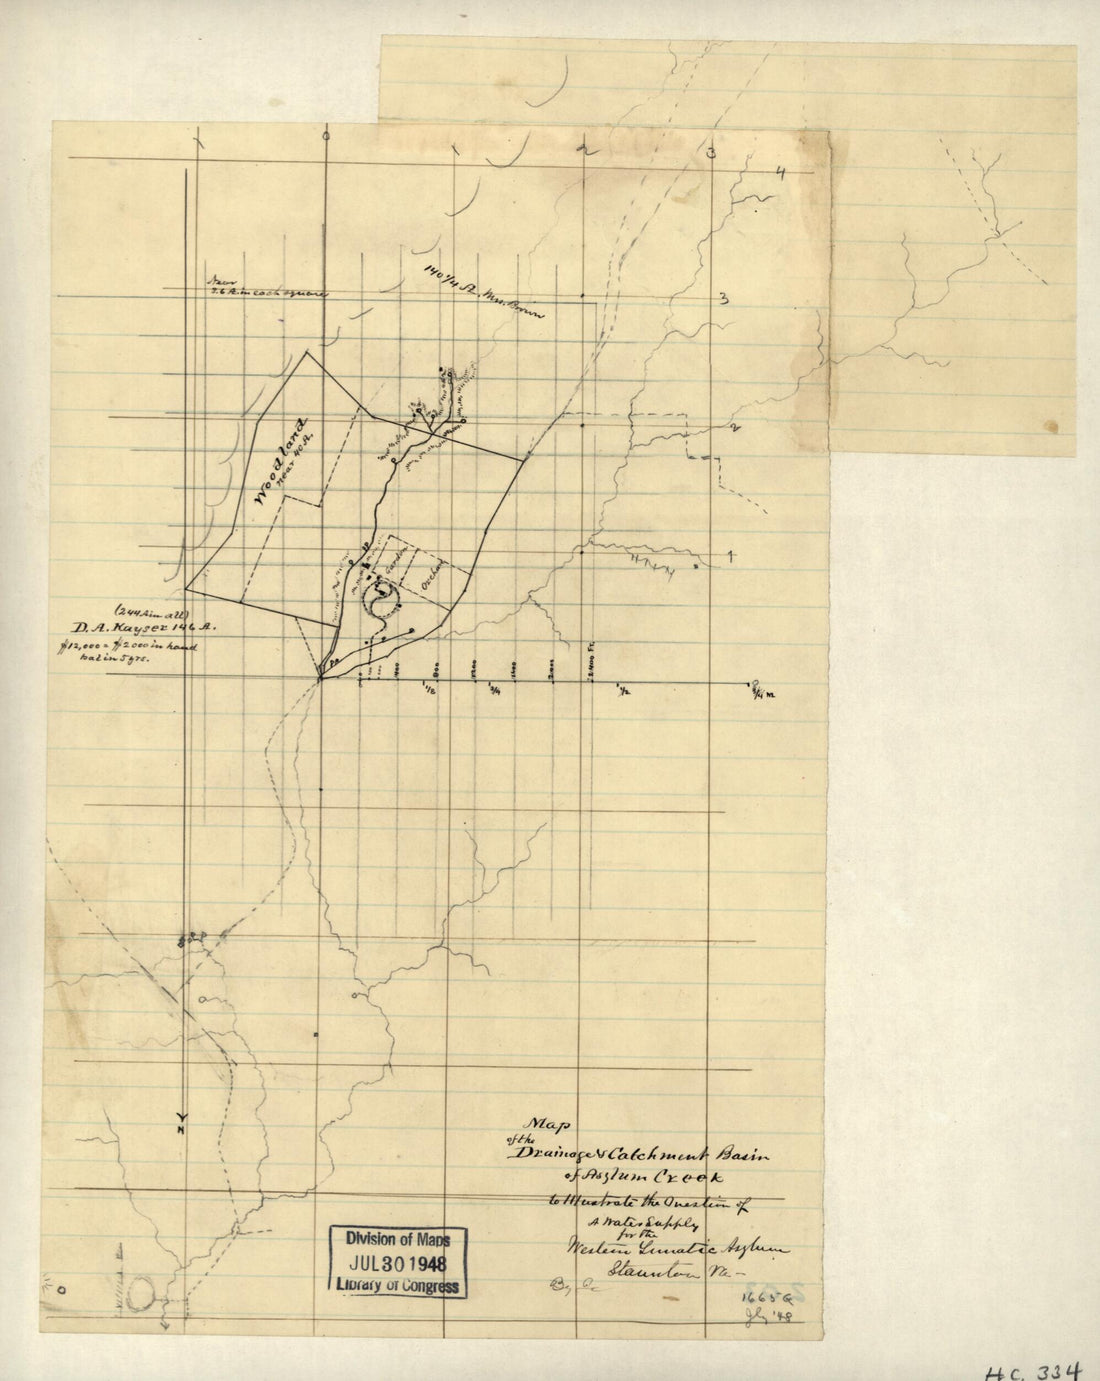 1 0 1 2 3
4
140 1/4 A. Mrs. Brown
Near
3.6 A. in each square
3
2
Woodland
near 40 A.
1
Garden
Orchard
(244 A in all)
D. A. Kayser 146 A.
$12,000 = $2000 in hand
bal in 5 yrs.
400 800 1200 1600 2000 2400 Ft.
1/8 1/4 1/2 3/4 m
N
Map
of the
Drainage & Catchment Basin
of Asylum Creek
to Illustrate the Question of
A Water Supply
for the
Western Lunatic Asylum
Staunton Va-
By
Division of Maps
JUL 30 1948
Library of Congress
July '48
H.C. 334